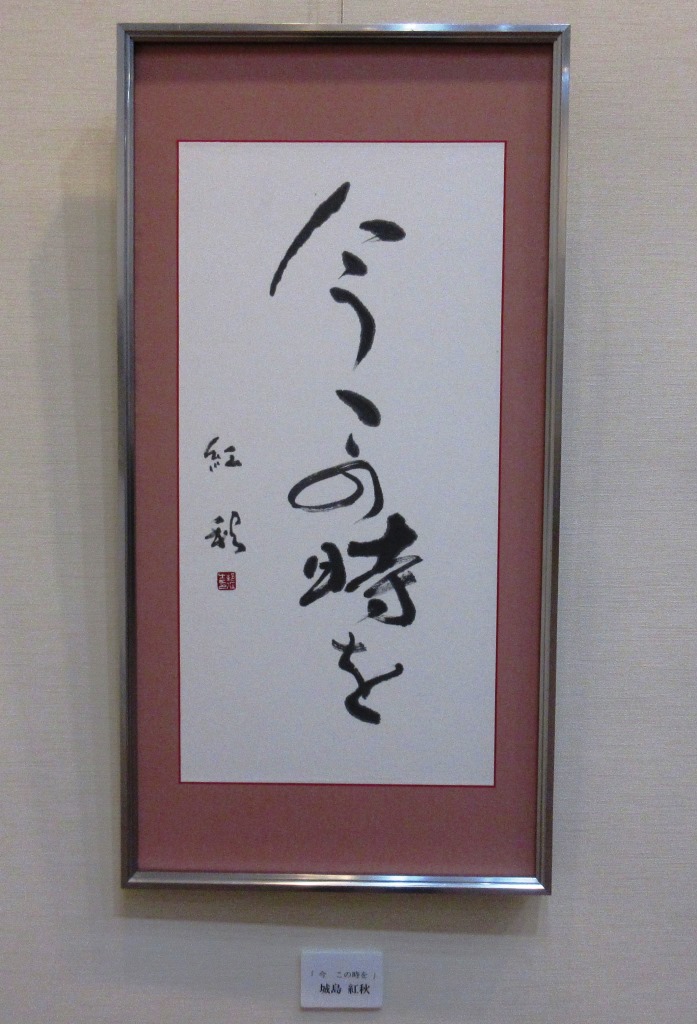 今この時を
紅秋
「今 この時を」
城島 紅秋